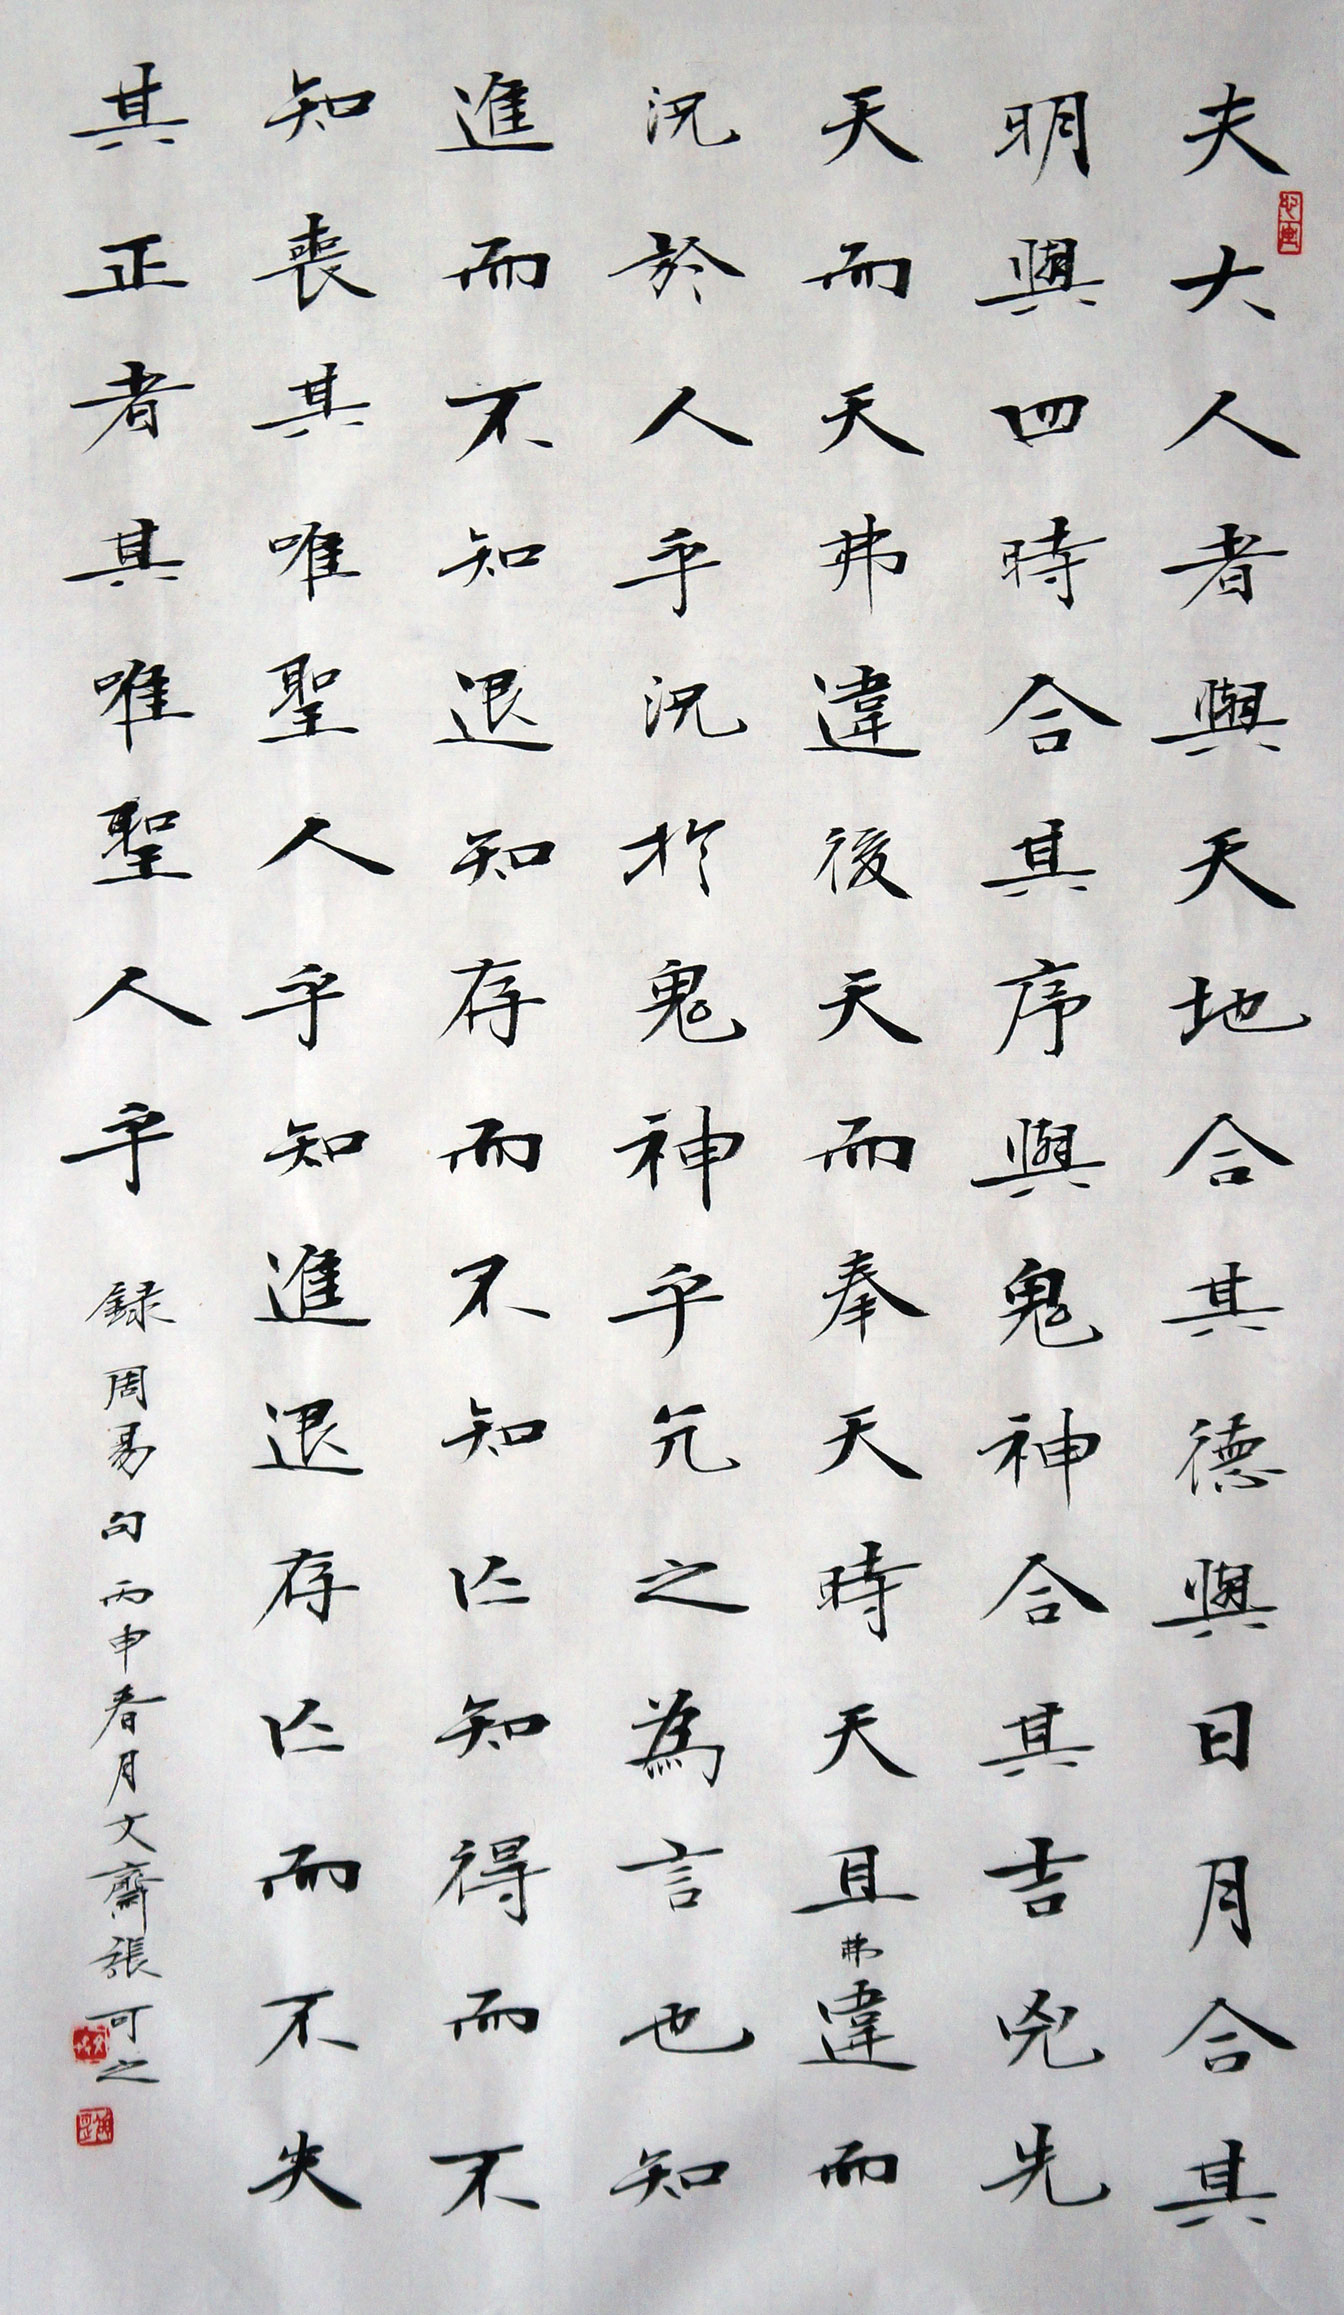 夫大人者與天地合其德與日月合其
明與四時合其序與鬼神合其吉兇先
天而天弗違後天而奉天時天且弗違而
況於人乎況於鬼神乎亢之為言也知
進而不知退知存而不知亡知得而不
知喪其唯聖人乎知進退存亡而不失
其正者其唯聖人乎 録周易句丙申春月文齋張可之